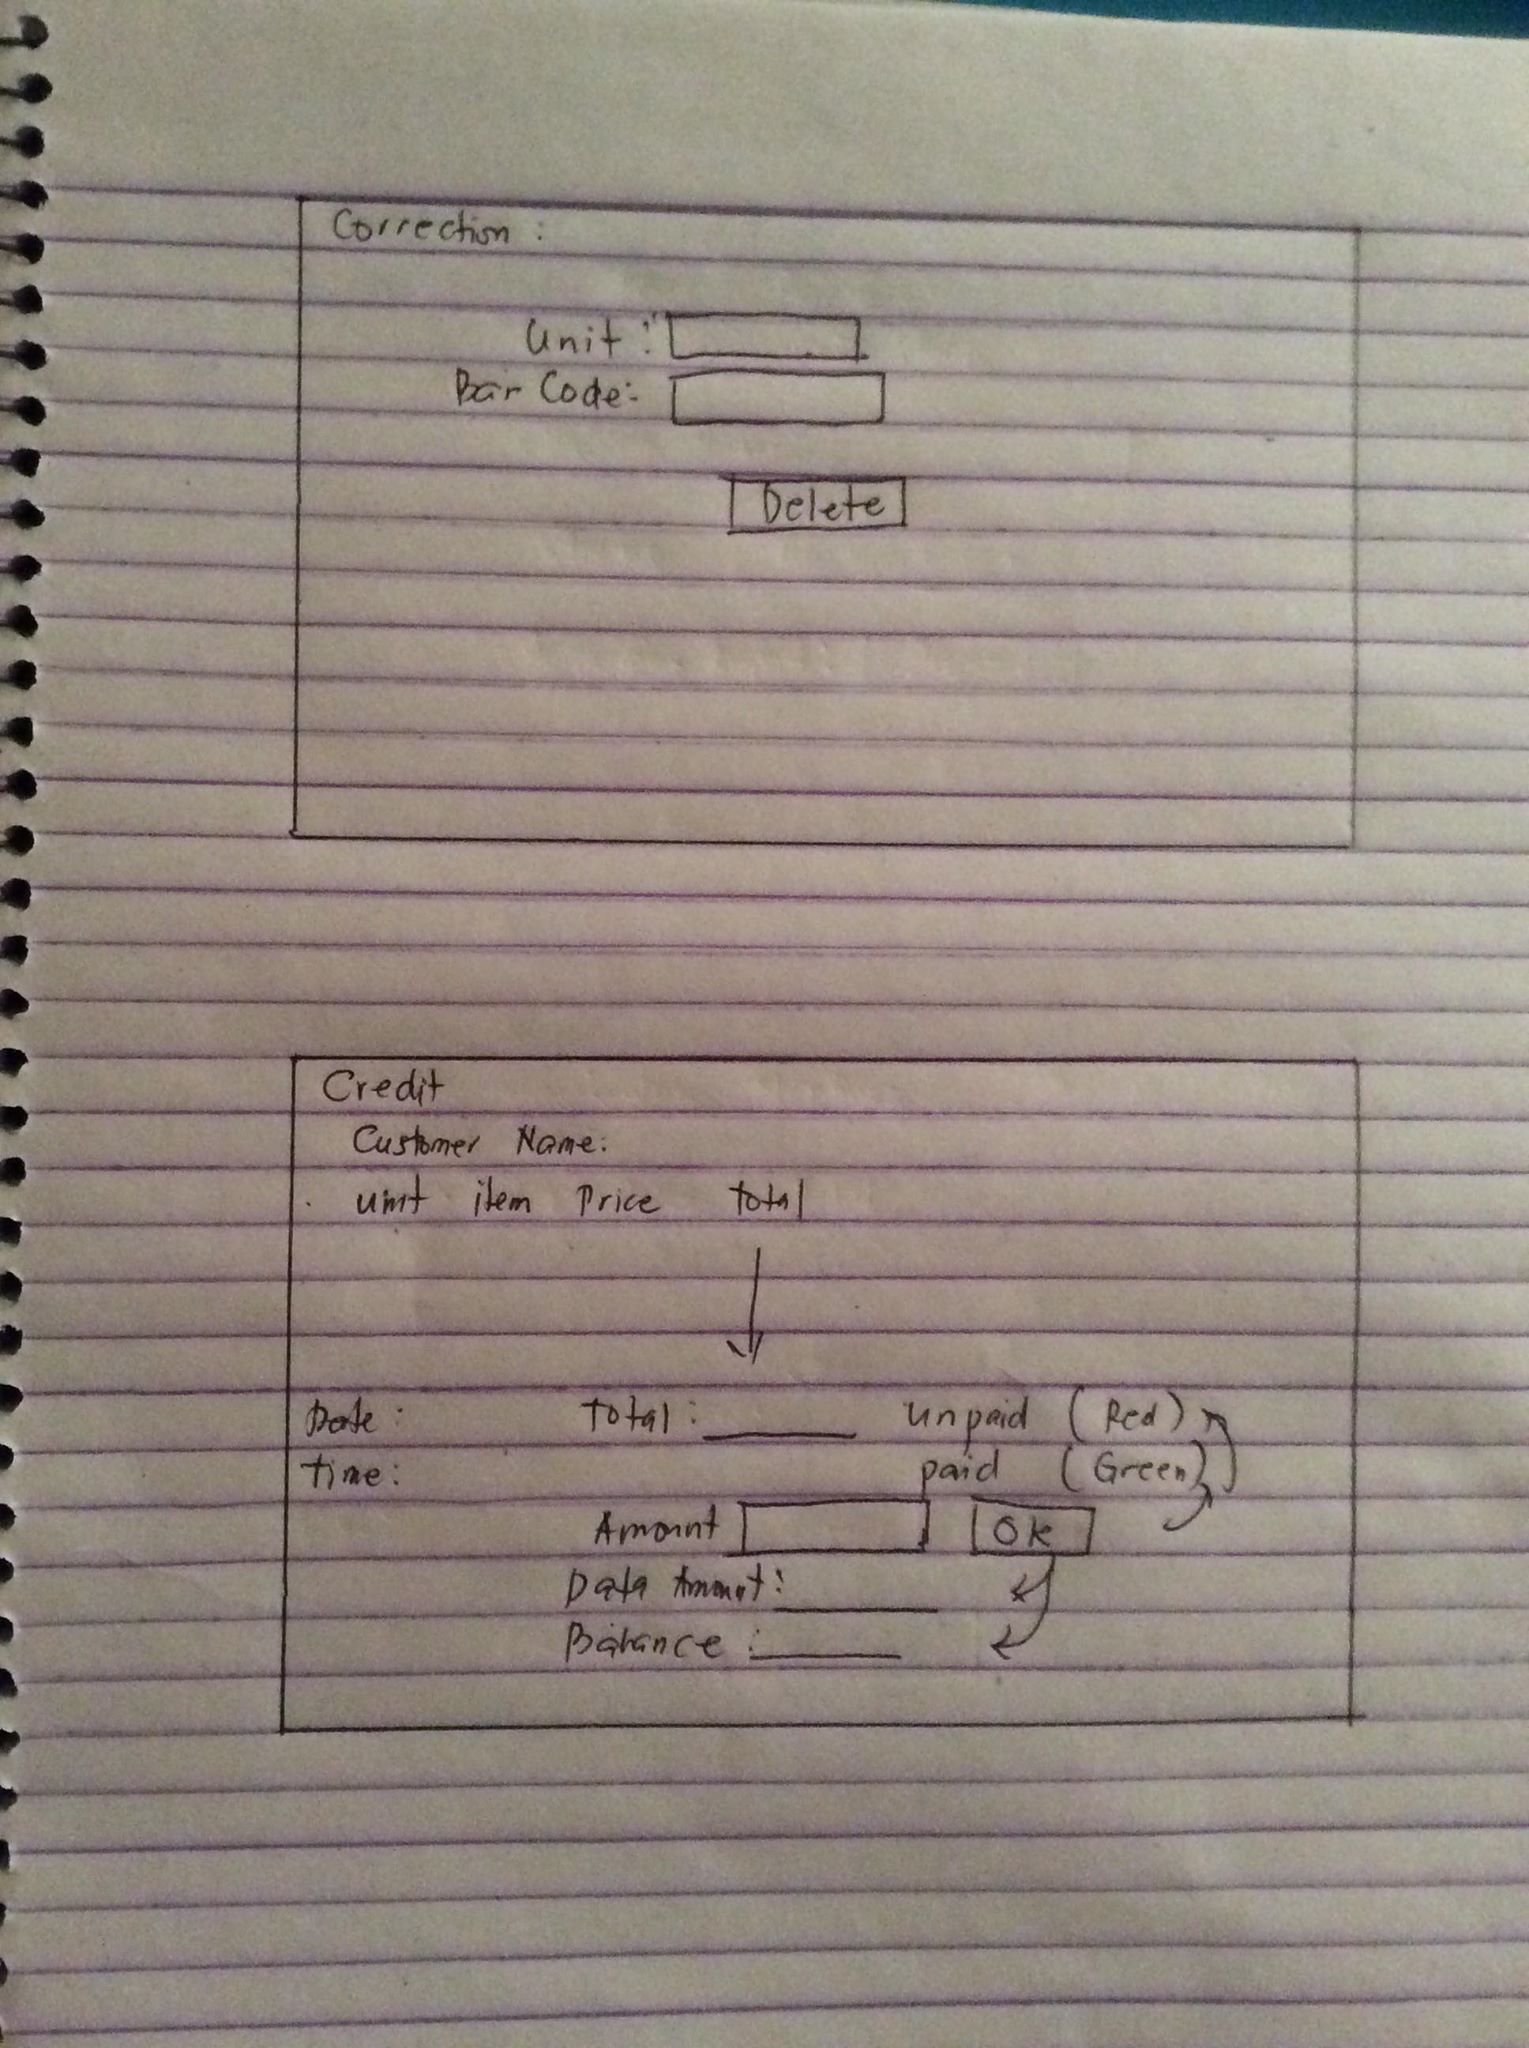 Correction :
Unit :
Bar Code:
Delete
Credit
Customer Name:
unit item Price total
Date : total : unpaid (Red)
time : paid (Green)
Amount Ok
Data Amount :
Balance :